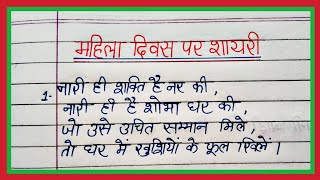 महिला दिवस पर शायरी
1- नारी ही शक्ति है नर की,
नारी ही है शोभा घर की,
जो उसे उचित सम्मान मिले,
तो घर में खुशियों के फूल खिलें।